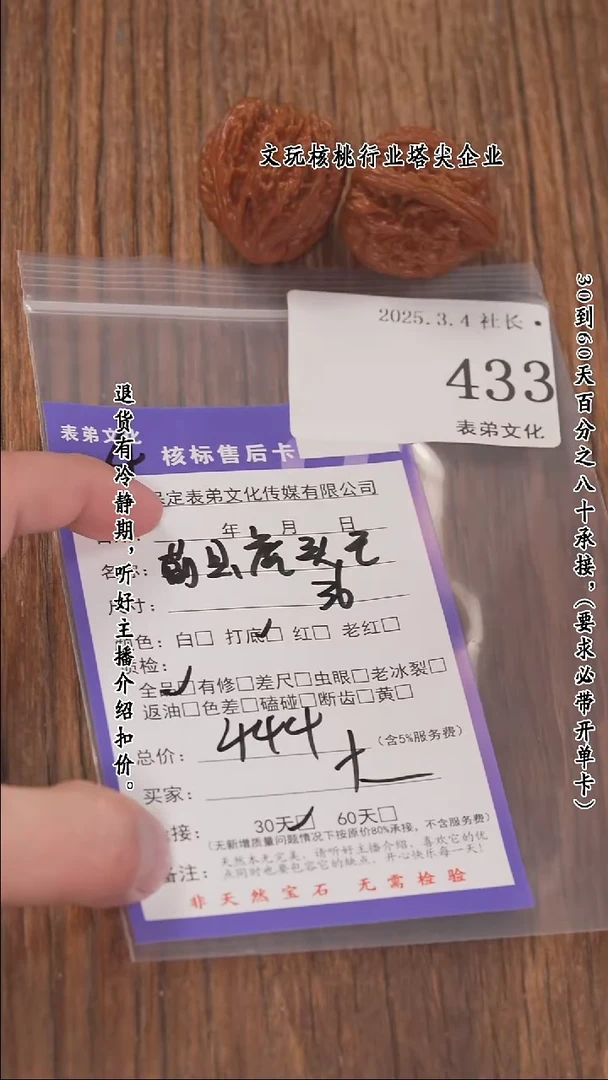 文玩核桃行业塔尖企业
30到60天百分之八十承接，（要求必带开单卡）
退货有冷静期，听好主播介绍扣价。
2025.3.4 社长 •
433
表弟文化
表弟文化
核标售后卡
定表弟文化传媒有限公司
年 月 日
蓟县虎头
36
色：白□ 打底☑ 红□ 老红□
质检：
全品☑有修□差尺□虫眼□老冰裂□
返油□色差□磕碰□断齿□黄□
总价： 444 （含5%服务费）
买家：
接： 30天☑ 60天□
（无新增质量问题情况下按原价80%承接，不含服务费）
备注： 天然本无完美，请听好主播介绍、喜欢它的优
点同时也要包容它的缺点，开心快乐每一天！
非天然宝石 无需检验